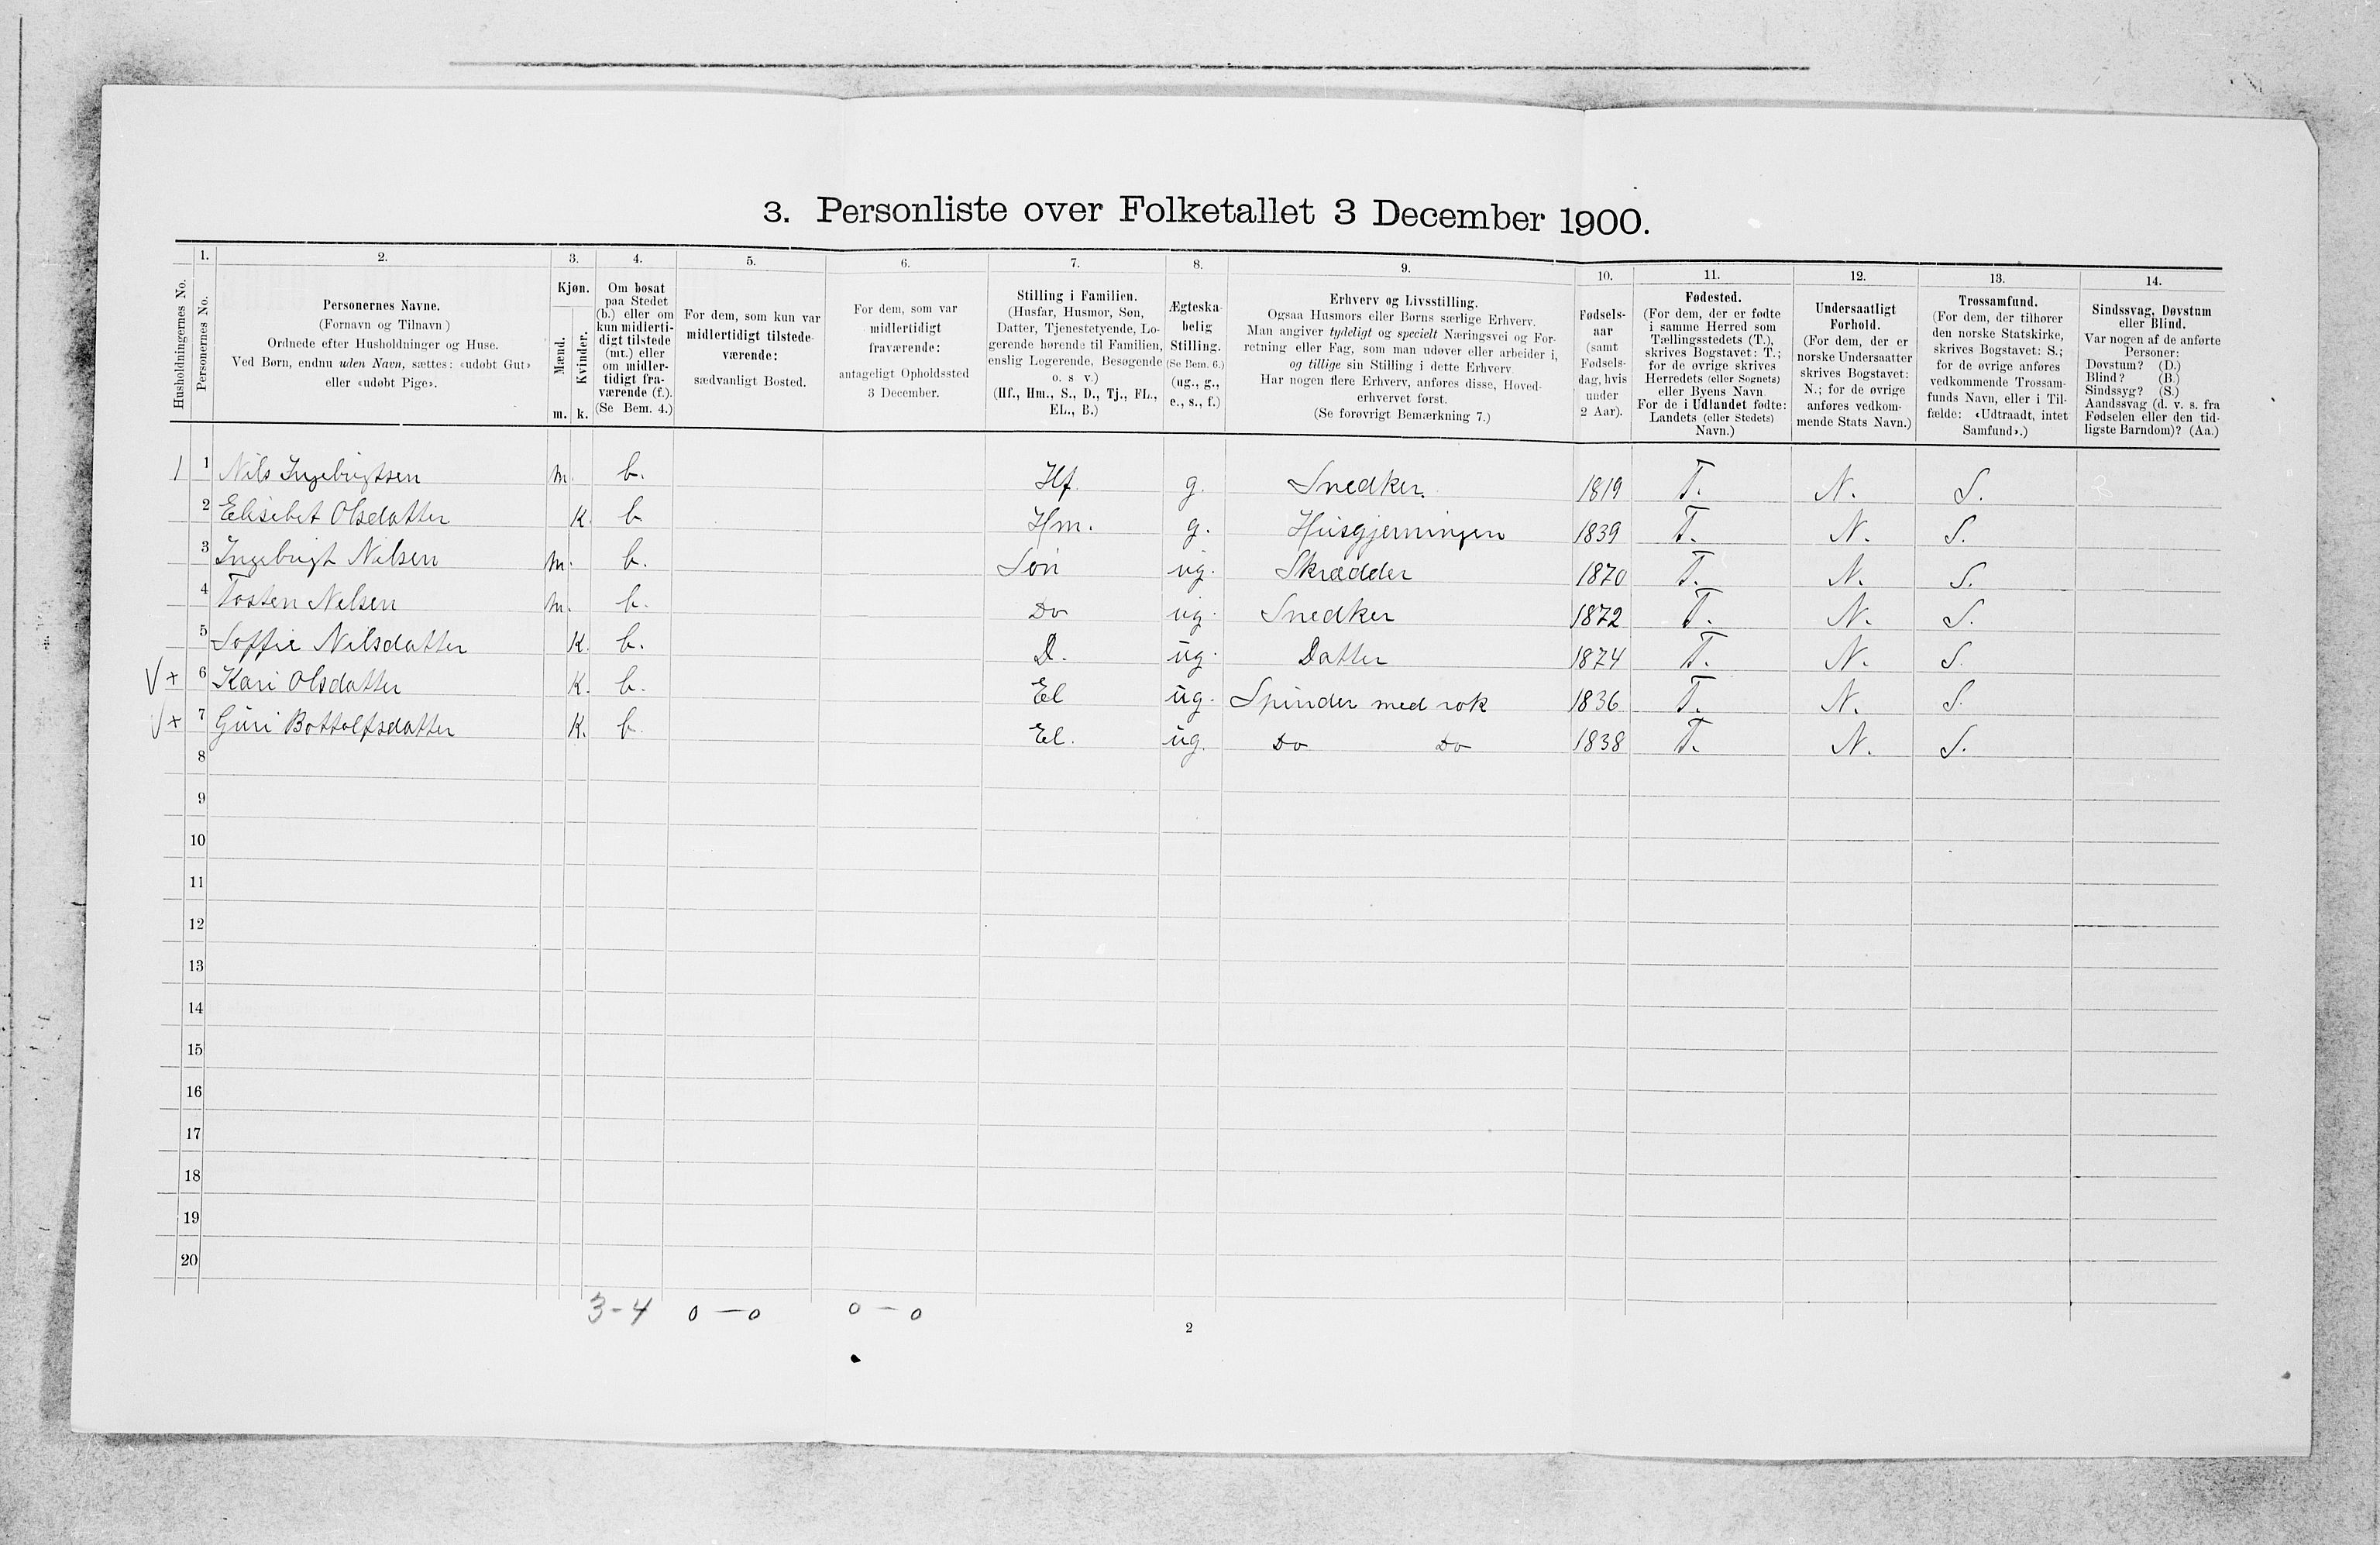 3. Personliste over Folketallet 3 December 1900.
1. 2. 3. 4. 5. 6. 7. 8. 9. 10. 11. 12. 13. 14.
Husholdningernes No.
Personernes No.
Personernes Navne.
(Fornavn og Tilnavn.)
Ordnede efter Husholdninger og Huse.
Ved Børn, endnu uden Navn, sættes: «udøbt Gut»
eller «udøbt Pige».
Kjøn.
Mænd.
Kvinder.
m. k.
Om bosat
paa Stedet
(b.) eller om
kun midlerti-
digt tilstede
(mt.) eller
om midler-
tidigt fra-
værende (f.).
(Se Bem. 4.)
For dem, som kun var
midlertidigt tilstede-
værende:
sædvanligt Bosted.
For dem, som var
midlertidigt
fraværende:
antageligt Opholdssted
3 December.
Stilling i Familien.
(Husfar, Husmor, Søn,
Datter, Tjenestetyende, Lo-
gerende hørende til Familien,
enslig Logerende, Besøgende
o. s v.)
(Hf., Hm., S., D., Tj., FL.,
EL., B.)
Ægteska-
belig
Stilling.
(Se Bem. 6.)
(ug., g.,
e., s., f.)
Erhverv og Livsstilling.
Ogsaa Husmors eller Børns særlige Erhverv.
Man angiver tydeligt og specielt Næringsvei og For-
retning eller Fag, som man udøver eller arbeider i,
og tillige sin Stilling i dette Erhverv.
Har nogen flere Erhverv, anføres disse, Hoved-
erhvervet først.
(Se forøvrigt Bemærkning 7.)
Fødsels-
aar
(samt
Fødsels-
dag, hvis
under
2 Aar).
Fødested.
(For dem, der er fødte
i samme Herred som
Tællingsstedets (T.),
skrives Bogstavet: T.;
for de øvrige skrives
Herredets (eller Sognets)
eller Byens Navn.
For de i Udlandet fødte:
Landets (eller Stedets)
Navn.)
Undersaatligt
Forhold.
(For dem, der er
norske Undersaatter
skrives Bogstavet:
N.; for de øvrige
anføres vedkom-
mende Stats Navn.)
Trossamfund.
(For dem, der tilhører
den norske Statskirke,
skrives Bogstavet: S.;
for de øvrige anføres
vedkommende Trossam-
funds Navn, eller i Til-
fælde: «Udtraadt, intet
Samfund».)
Sindssvag, Døvstum
eller Blind.
Var nogen af de anførte
Personer:
Døvstum? (D.)
Blind? (B.)
Sindssyg? (S.)
Aandssvag (d. v. s. fra
Fødselen eller den tid-
ligste Barndom)? (Aa.)
1 1 Nils Ingebrigtsen m. b. Hf. g. Snedker. 1819 T. N. S.
2 Elisebet Olsdatter K. b Hm. g. Husgjerningen 1839 T. N. S.
3 Ingebrigt Nilsen m. b. Søn ug. Skrædder 1870 T. N. S.
4 Tosten Nelsen m. b. Do ug. Snedker 1872 T. N. S.
5 Soffie Nilsdatter K. b. D. ug. Datter 1874 T. N. S.
V x 6 Kari Olsdatter K. b. El ug. Spinder med rok 1836 T. N. S.
V x 7 Guri Bottolfsdatter K. b. El. ug. Do Do 1838 T. N. S.
8
9
10
11
12
13
14
15
16
17
18
19
20
3-4 0-0 0-0
2